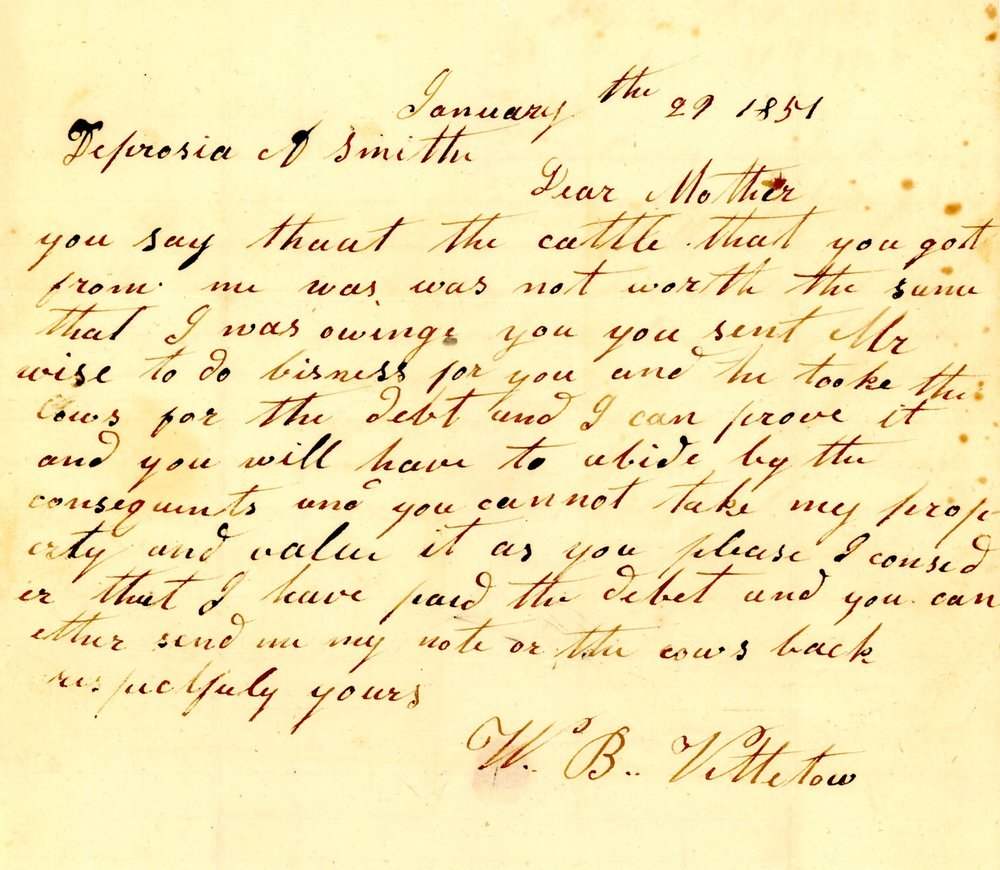 January the 29 1851
Deprosia A Smithe
Dear Mother
you say thaat the cattle that you got
from me was was not worth the same
that I was owing you you sent Mr
wise to do bisness for you and he tooke the
cows for the debt and I can prove it
and you will have to abide by the
consequents and you cannot take my prop
erty and value it as you please I consed
er that I have paid the debet and you can
ether send me my note or the cows back
respectfuly yours
W. B.. Vittetow